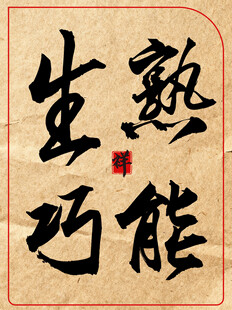 熟能
生巧
祥